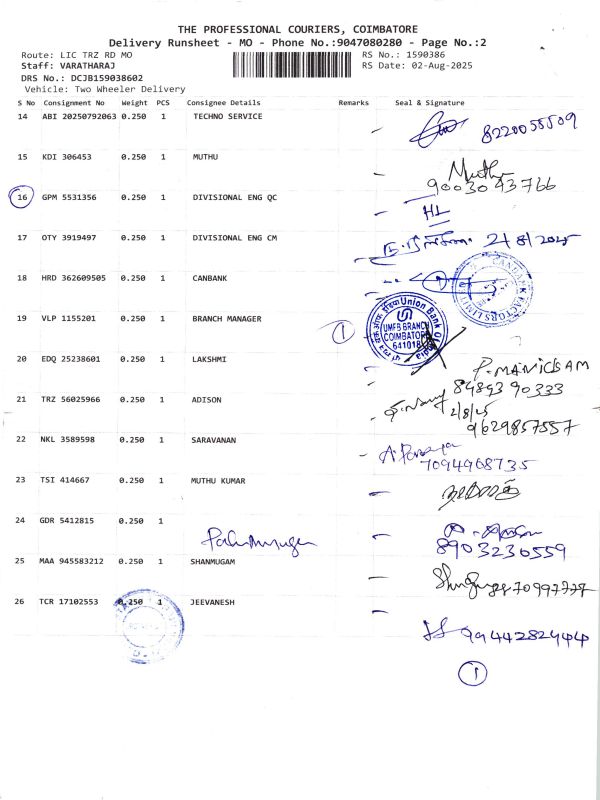 THE PROFESSIONAL COURIERS, COIMBATORE
Delivery Runsheet - MO - Phone No.:9047080280 - Page No.:2
Route: LIC TRZ RD MO RS No.: 1590386
Staff: VARATHARAJ RS Date: 02-Aug-2025
DRS No.: DCJB159038602
Vehicle: Two Wheeler Delivery
S No Consignment No Weight PCS Consignee Details Remarks Seal & Signature
14 ABI 20250792063 0.250 1 TECHNO SERVICE
8220055509
15 KDI 306453 0.250 1 MUTHU
Muthu
9003043766
16 GPM 5531356 0.250 1 DIVISIONAL ENG QC
17 OTY 3919497 0.250 1 DIVISIONAL ENG CM
2/8/2025
18 HRD 362609505 0.250 1 CANBANK
CANBANK FACTORS LIMITED
19 VLP 1155201 0.250 1 BRANCH MANAGER
1
Union Bank Of India
UMFB BRANCH
COIMBATORE
641018
20 EDQ 25238601 0.250 1 LAKSHMI
P. MANICKAM
8489390333
21 TRZ 56025966 0.250 1 ADISON
2/8/25
9629857557
22 NKL 3589598 0.250 1 SARAVANAN
7094968735
23 TSI 414667 0.250 1 MUTHU KUMAR
24 GDR 5412815 0.250 1
8903230559
25 MAA 945583212 0.250 1 SHANMUGAM
26 TCR 17102553 0.250 1 JEEVANESH
9944282944
1